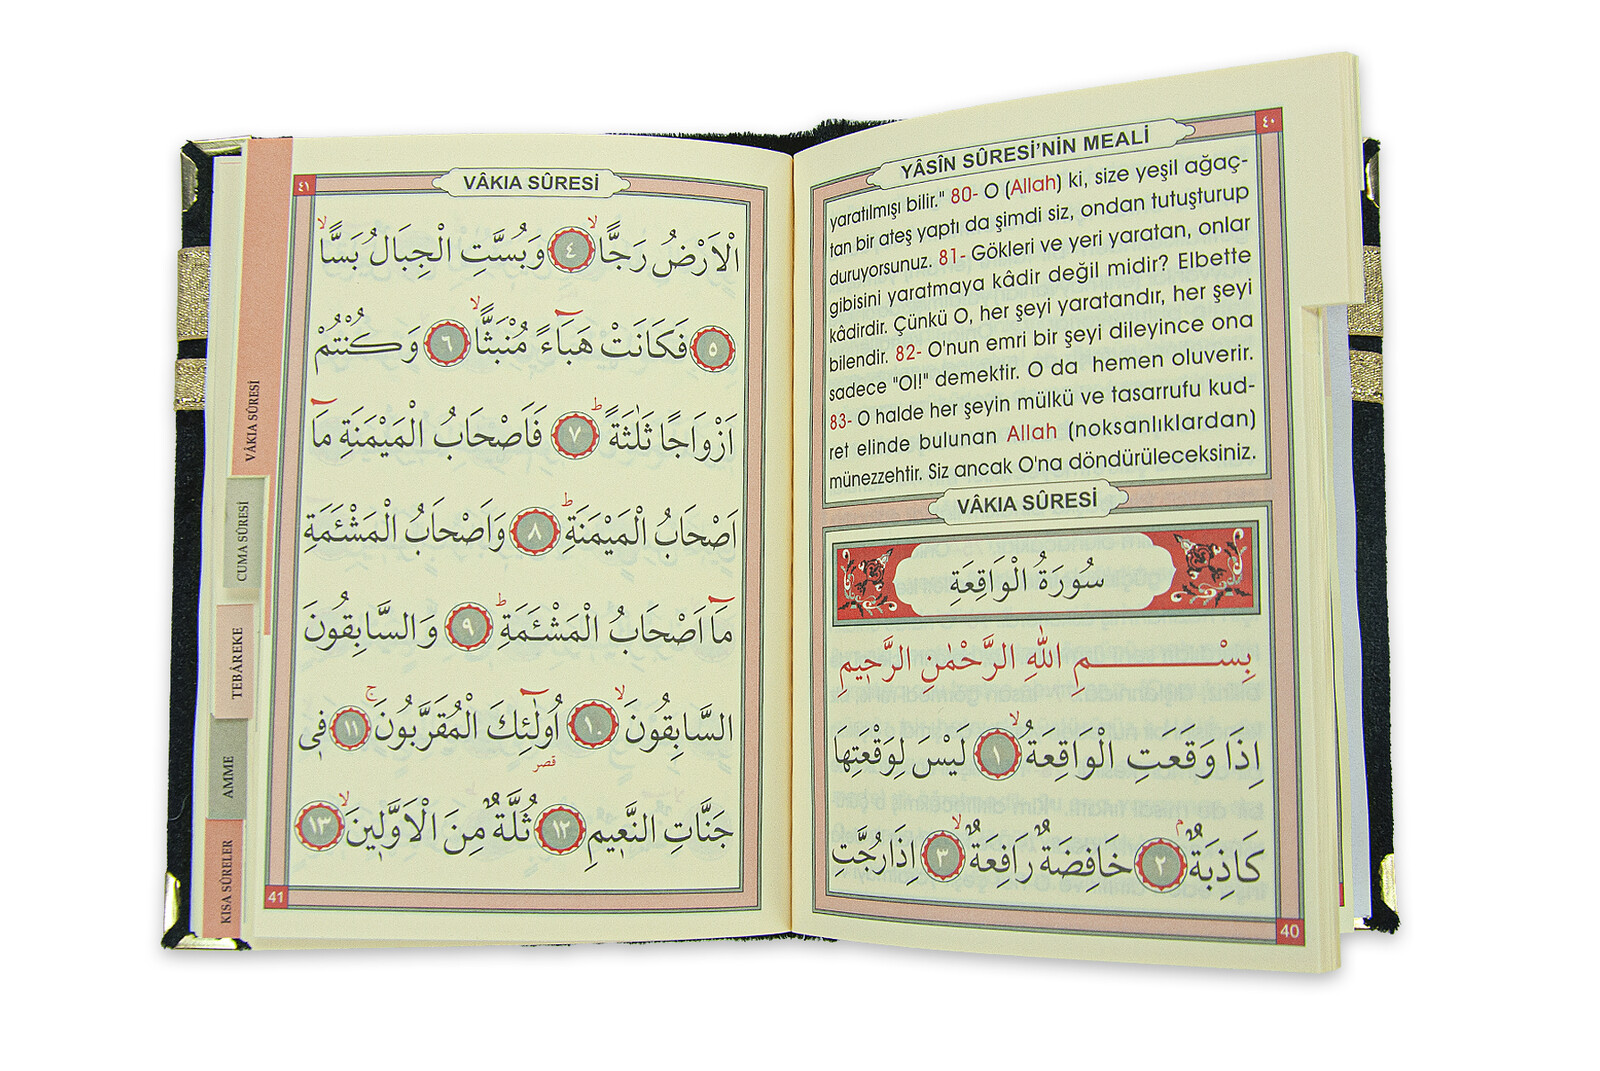 ٤٠
YÂSÎN SÛRESİ'NİN MEALİ
yaratılmışı bilir." 80- O (Allah) ki, size yeşil ağaç-
tan bir ateş yaptı da şimdi siz, ondan tutuşturup
duruyorsunuz. 81- Gökleri ve yeri yaratan, onlar
gibisini yaratmaya kâdir değil midir? Elbette
kâdirdir. Çünkü O, her şeyi yaratandır, her şeyi
bilendir. 82- O'nun emri bir şeyi dileyince ona
sadece "Ol!" demektir. O da hemen oluverir.
83- O halde her şeyin mülkü ve tasarrufu kud-
ret elinde bulunan Allah (noksanlıklardan)
münezzehtir. Siz ancak O'na döndürüleceksiniz.
VÂKIA SÛRESİ
سُورَةُ الْوَاقِعَةِ
بِسْمِ اللّٰهِ الرَّحْمٰنِ الرَّحٖيمِ
اِذَا وَقَعَتِ الْوَاقِعَةُ ۙ ١ لَيْسَ لِوَقْعَتِهَا
كَاذِبَةٌ ۢ ٢ خَافِضَةٌ رَافِعَةٌ ۙ ٣ اِذَا رُجَّتِ
40
٤١
VÂKIA SÛRESİ
الْاَرْضُ رَجًّا ۙ ٤ وَبُسَّتِ الْجِبَالُ بَسًّا ۙ
٥ فَكَانَتْ هَبَٓاءً مُنْبَثًّا ۙ ٦ وَكُنْتُمْ
اَزْوَاجًا ثَلٰثَةً ؕ ٧ فَاَصْحَابُ الْمَيْمَنَةِ مَٓا
اَصْحَابُ الْمَيْمَنَةِ ؕ ٨ وَاَصْحَابُ الْمَشْـَٔمَةِ
مَٓا اَصْحَابُ الْمَشْـَٔمَةِ ؕ ٩ وَالسَّابِقُونَ
السَّابِقُونَ ۙ ١٠ اُولٰٓئِكَ الْمُقَرَّبُونَ ۚ ١١ فٖي
قصر
جَنَّاتِ النَّعٖيمِ ١٢ ثُلَّةٌ مِنَ الْاَوَّلٖينَ ۙ ١٣
41
VÂKIA SÛRESİ
CUMA SÛRESİ
TEBÂREKE
AMME
KISA SÛRELER